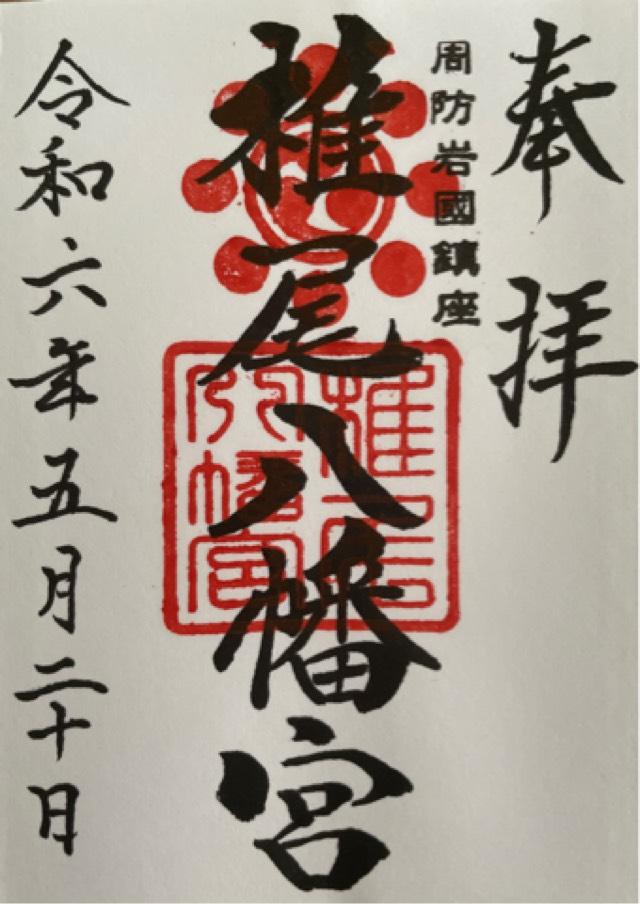 奉拝
周防岩國鎮座
椎尾八幡宮
椎尾
八幡宮
令和六年五月二十日